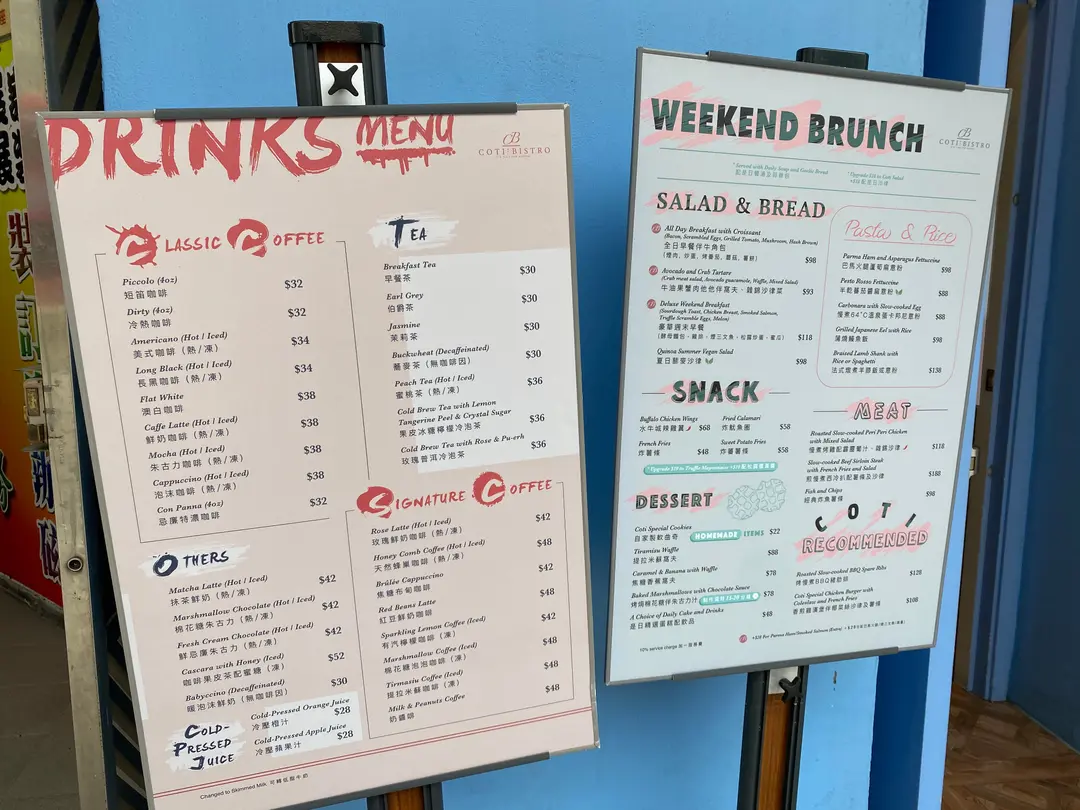 DRINKS MENU
COTI BISTRO
CLASSIC COFFEE
Piccolo (4oz)
短笛咖啡
$32
Dirty (4oz)
冷熱咖啡
$32
Americano (Hot / Iced)
美式咖啡（熱/凍）
$34
Long Black (Hot / Iced)
長黑咖啡（熱/凍）
$34
Flat White
澳白咖啡
$38
Caffe Latte (Hot / Iced)
鮮奶咖啡（熱/凍）
$38
Mocha (Hot / Iced)
朱古力咖啡（熱/凍）
$38
Cappuccino (Hot / Iced)
泡沫咖啡（熱/凍）
$38
Con Panna (4oz)
忌廉特濃咖啡
$32
OTHERS
Matcha Latte (Hot / Iced)
抹茶鮮奶（熱/凍）
$42
Marshmallow Chocolate (Hot / Iced)
棉花糖朱古力（熱/凍）
$42
Fresh Cream Chocolate (Hot / Iced)
鮮忌廉朱古力（熱/凍）
$42
Cascara with Honey (Iced)
咖啡果皮茶配蜜糖（凍）
$52
Babyccino (Decaffeinated)
暖泡沫鮮奶（無咖啡因）
$30
COLD-PRESSED JUICE
Cold-Pressed Orange Juice
冷壓橙汁
$28
Cold-Pressed Apple Juice
冷壓蘋果汁
$28
TEA
Breakfast Tea
早餐茶
$30
Earl Grey
伯爵茶
$30
Jasmine
茉莉茶
$30
Buckwheat (Decaffeinated)
蕎麥茶（無咖啡因）
$30
Peach Tea (Hot / Iced)
蜜桃茶（熱/凍）
$36
Cold Brew Tea with Lemon
Tangerine Peel & Crystal Sugar
果皮冰糖檸檬冷泡茶
$36
Cold Brew Tea with Rose & Pu-erh
玫瑰普洱冷泡茶
$36
SIGNATURE COFFEE
Rose Latte (Hot / Iced)
玫瑰鮮奶咖啡（熱/凍）
$42
Honey Comb Coffee (Hot / Iced)
天然蜂巢咖啡（熱/凍）
$48
Brûlée Cappuccino
焦糖布甸咖啡
$48
Red Beans Latte
紅豆鮮奶咖啡
$42
Sparkling Lemon Coffee (Iced)
有汽檸檬咖啡（凍）
$42
Marshmallow Coffee (Iced)
棉花糖泡泡咖啡（凍）
$48
Tirmasiu Coffee (Iced)
提拉米蘇咖啡（凍）
$48
Milk & Peanuts Coffee
奶醬咖啡
$48
Changed to Skimmed Milk 可轉低脂牛奶
WEEKEND BRUNCH
COTI BISTRO
* Served with Daily Soup and Garlic Bread
* Upgrade $10 to Coti Salad
SALAD & BREAD
All Day Breakfast with Croissant
(Bacon, Scrambled Eggs, Grilled Tomato, Mushroom, Hash Brown)
全日早餐伴牛角包
(煙肉，炒蛋，烤番茄，蘑菇，薯餅)
$98
Avocado and Crab Tartare
(Crab meat salad, Avocado guacamole, Waffle, Mixed Salad)
牛油果蟹肉他他伴窩夫、雜錦沙律菜
$93
Deluxe Weekend Breakfast
(Sourdough Toast, Chicken Breast, Smoked Salmon,
Truffle Scramble Eggs, Melon)
豪華週末早餐
$118
Quinoa Summer Vegan Salad
夏日藜麥沙律
$98
Pasta & Rice
Parma Ham and Asparagus Fettuccine
巴馬火腿蘆筍扁意粉
$98
Pesto Rosso Fettuccine
$88
Carbonara with Slow-cooked Egg
慢煮64°C溫泉蛋卡邦尼意粉
$88
Grilled Japanese Eel with Rice
蒲燒鰻魚飯
$98
Braised Lamb Shank with
Rice or Spaghetti
$138
SNACK
Buffalo Chicken Wings
水牛城辣雞翼
$68
Fried Calamari
炸魷魚圈
$58
French Fries
炸薯條
$48
Sweet Potato Fries
炸蕃薯條
$58
DESSERT
Coti Special Cookies
自家製軟曲奇
HOMEMADE ITEMS
$22
Tiramizu Waffle
提拉米蘇窩夫
$88
Caramel & Banana with Waffle
焦糖香蕉窩夫
$78
Baked Marshmallows with Chocolate Sauce
烤焗棉花糖伴朱古力汁
$78
A Choice of Daily Cake and Drinks
是日精選蛋糕配飲品
$48
MEAT
Roasted Slow-cooked Peri Peri Chicken
with Mixed Salad
$118
Slow-cooked Beef Sirloin Steak
with French Fries and Salad
$188
Fish and Chips
經典炸魚薯條
$98
COTI
RECOMMENDED
Roasted Slow-cooked BBQ Spare Ribs
烤慢煮BBQ豬肋排
$128
Coti Special Chicken Burger with
Coleslaw and French Fries
$108
10% service charge 加一服務費